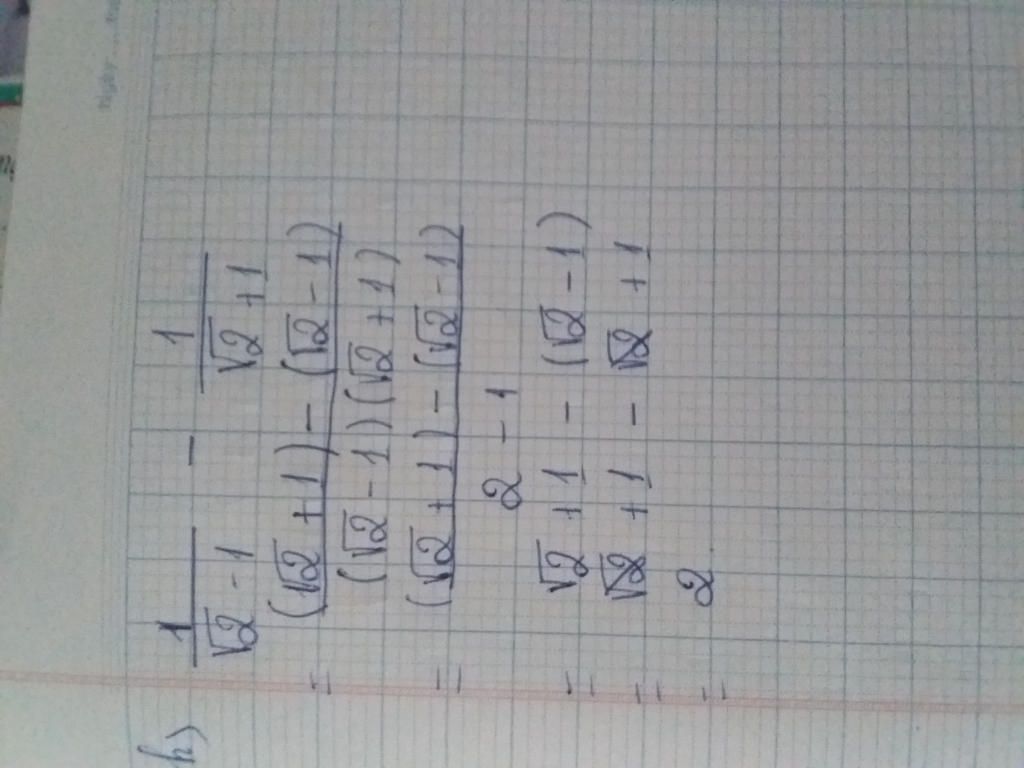 h) 1/(√2 - 1) - 1/(√2 + 1)
= ((√2 + 1) - (√2 - 1))/((√2 - 1)(√2 + 1))
= ((√2 + 1) - (√2 - 1))/(2 - 1)
= √2 + 1 - (√2 - 1)
= √2 + 1 - √2 + 1
= 2